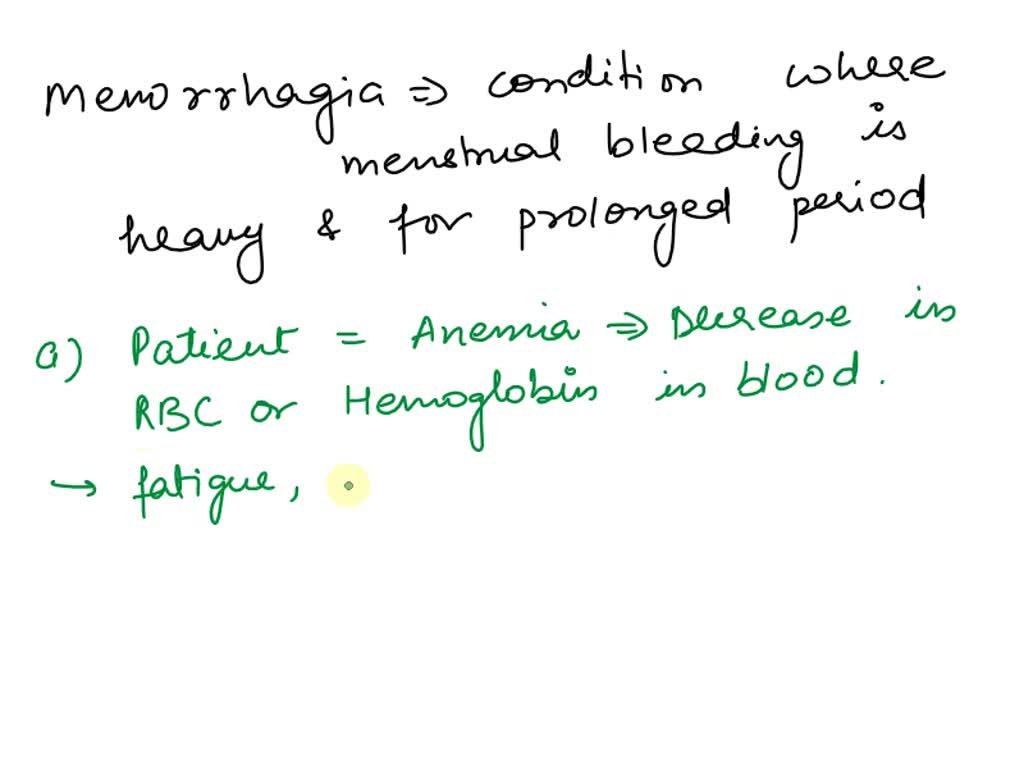 Menorrhagia ⇒ condition where
menstrual bleeding is
heavy & for prolonged period
a) Patient = Anemia ⇒ Decrease in
RBC or Hemoglobin in blood.
→ fatigue,